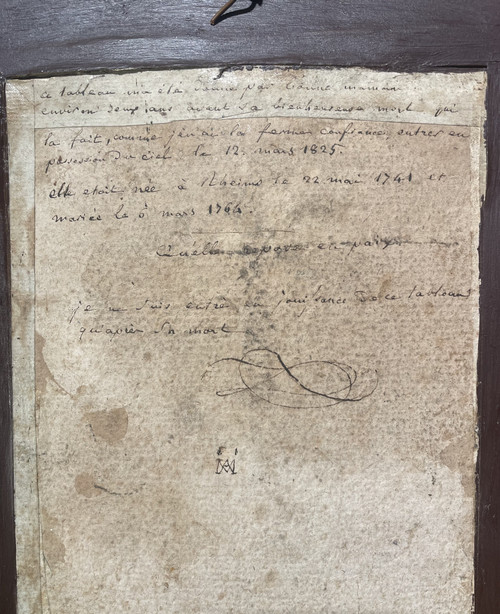 ce tableau m'a été donné par bonne maman
environ deux ans avant sa bienheureuse mort qui
la fait, comme j'en ai la ferme confiance, entrer en
possession du ciel. le 12 mars 1825.
elle etait née à Rheims le 22 mai 1741 et
mariée le 6 mars 1764.
Qu'elle repose en paix
je ne suis entré en jouissance de ce tableau
qu'après sa mort